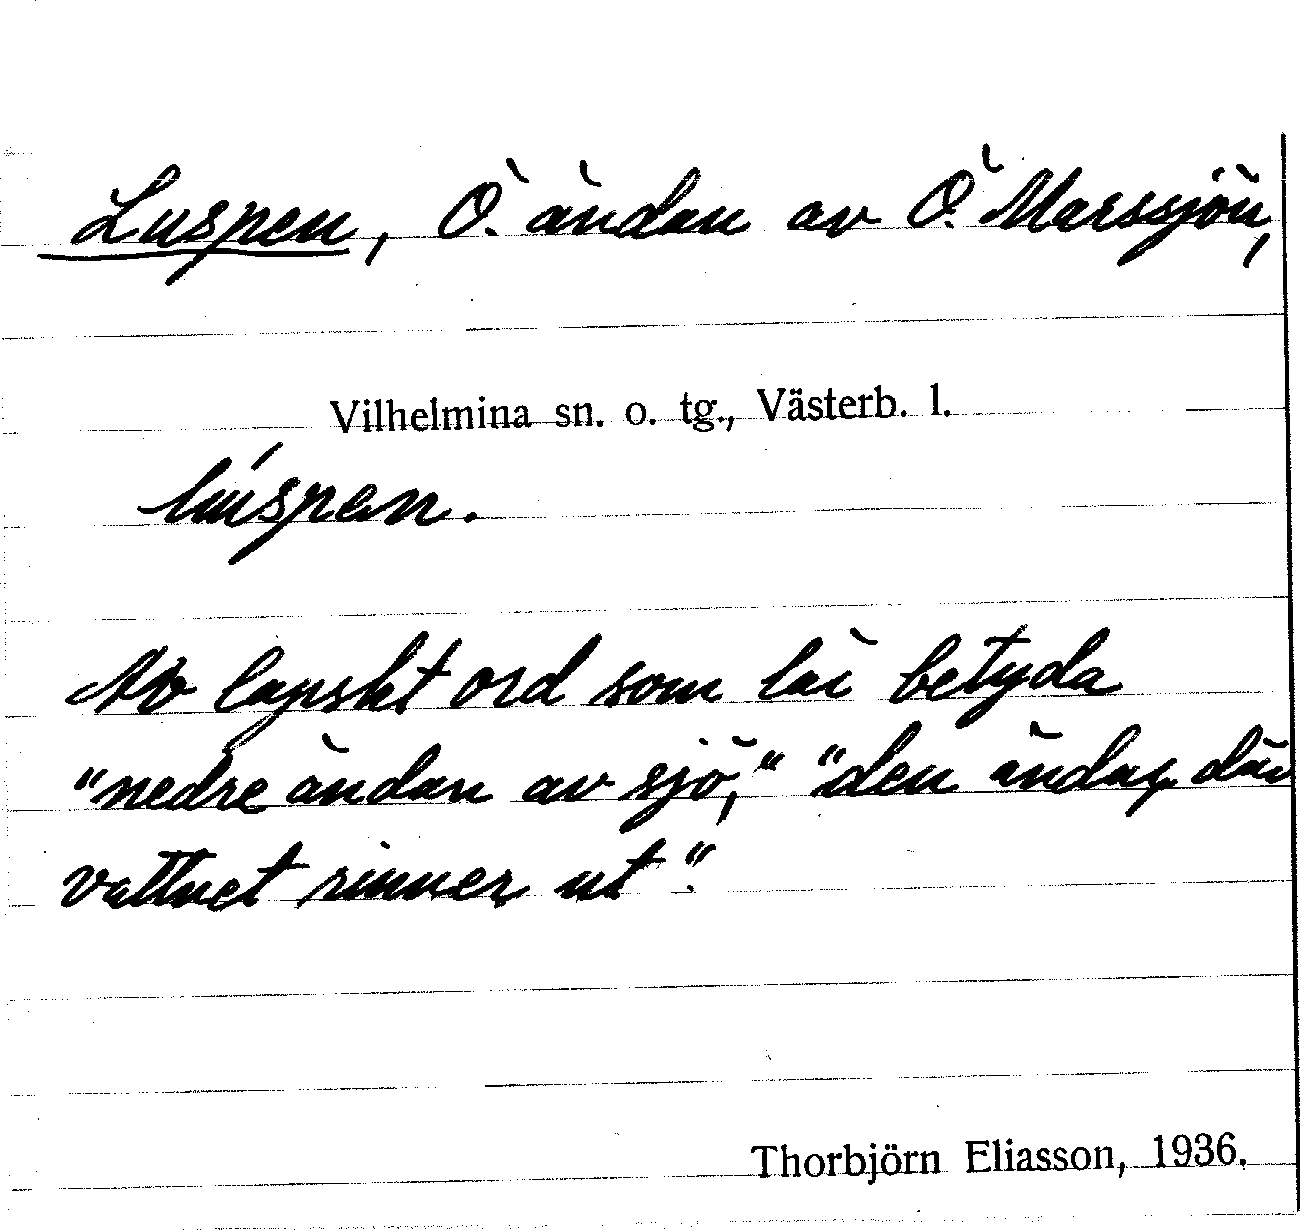 Luspen, Ö. ändan av Ö. Marssjön,
Vilhelmina sn. o. tg., Västerb. l.
luspen.
Av lapskt ord som lär betyda
"nedre ändan av sjö," "den ändan där
vattnet rinner ut".
Thorbjörn Eliasson, 1936.